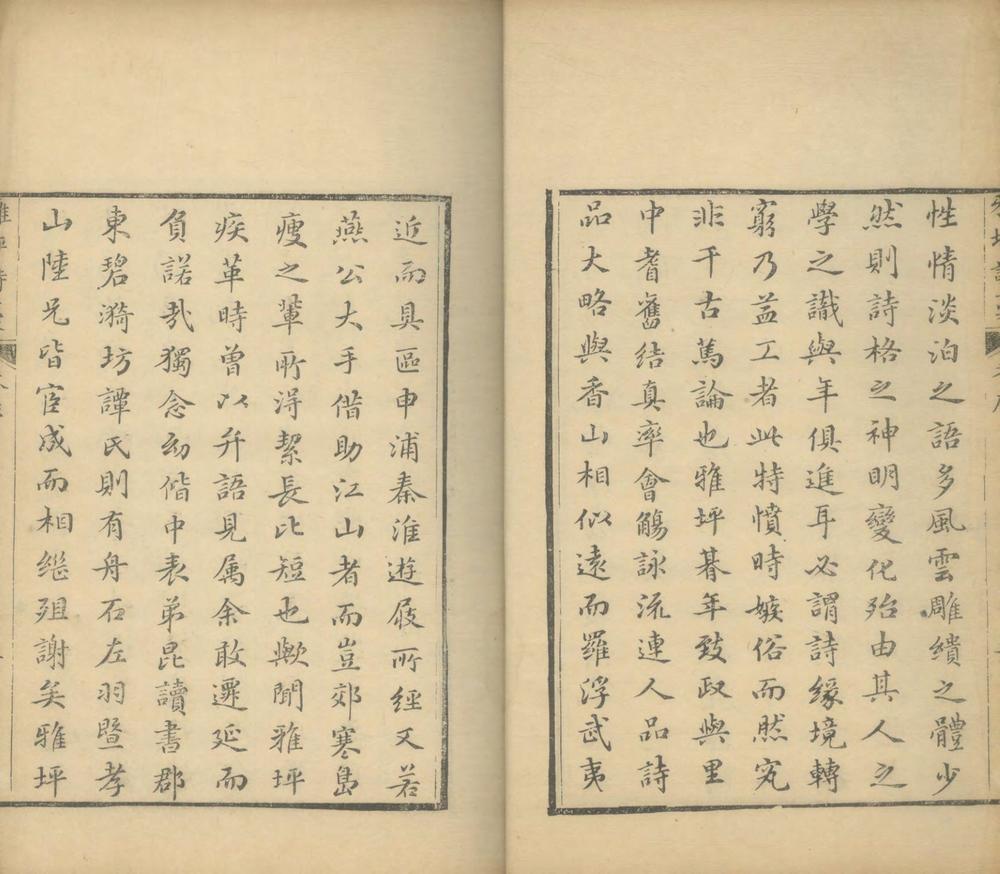 性情淡泊之語多風雲雕繢之體少
然則詩格之神明變化殆由其人之
學之識與年俱進耳必謂詩緣境轉
窮乃益工者此特憤時嫉俗而然究
非千古篤論也雅坪暮年致政與里
中耆舊結真率會觴詠流連人品詩
品大略與香山相似遠而羅浮武夷
近而具區申浦秦淮遊屐所經又若
燕公大手借助江山者而豈郊寒島
瘦之輩所得絜長比短也歟聞雅坪
疾革時曾以弁語見属余敢遷延而
負諾哉獨念幼偕中表弟昆讀書郡
東碧漪坊譚氏則有舟石左羽暨孝
山陸兄皆宦成而相继殂謝矣雅坪